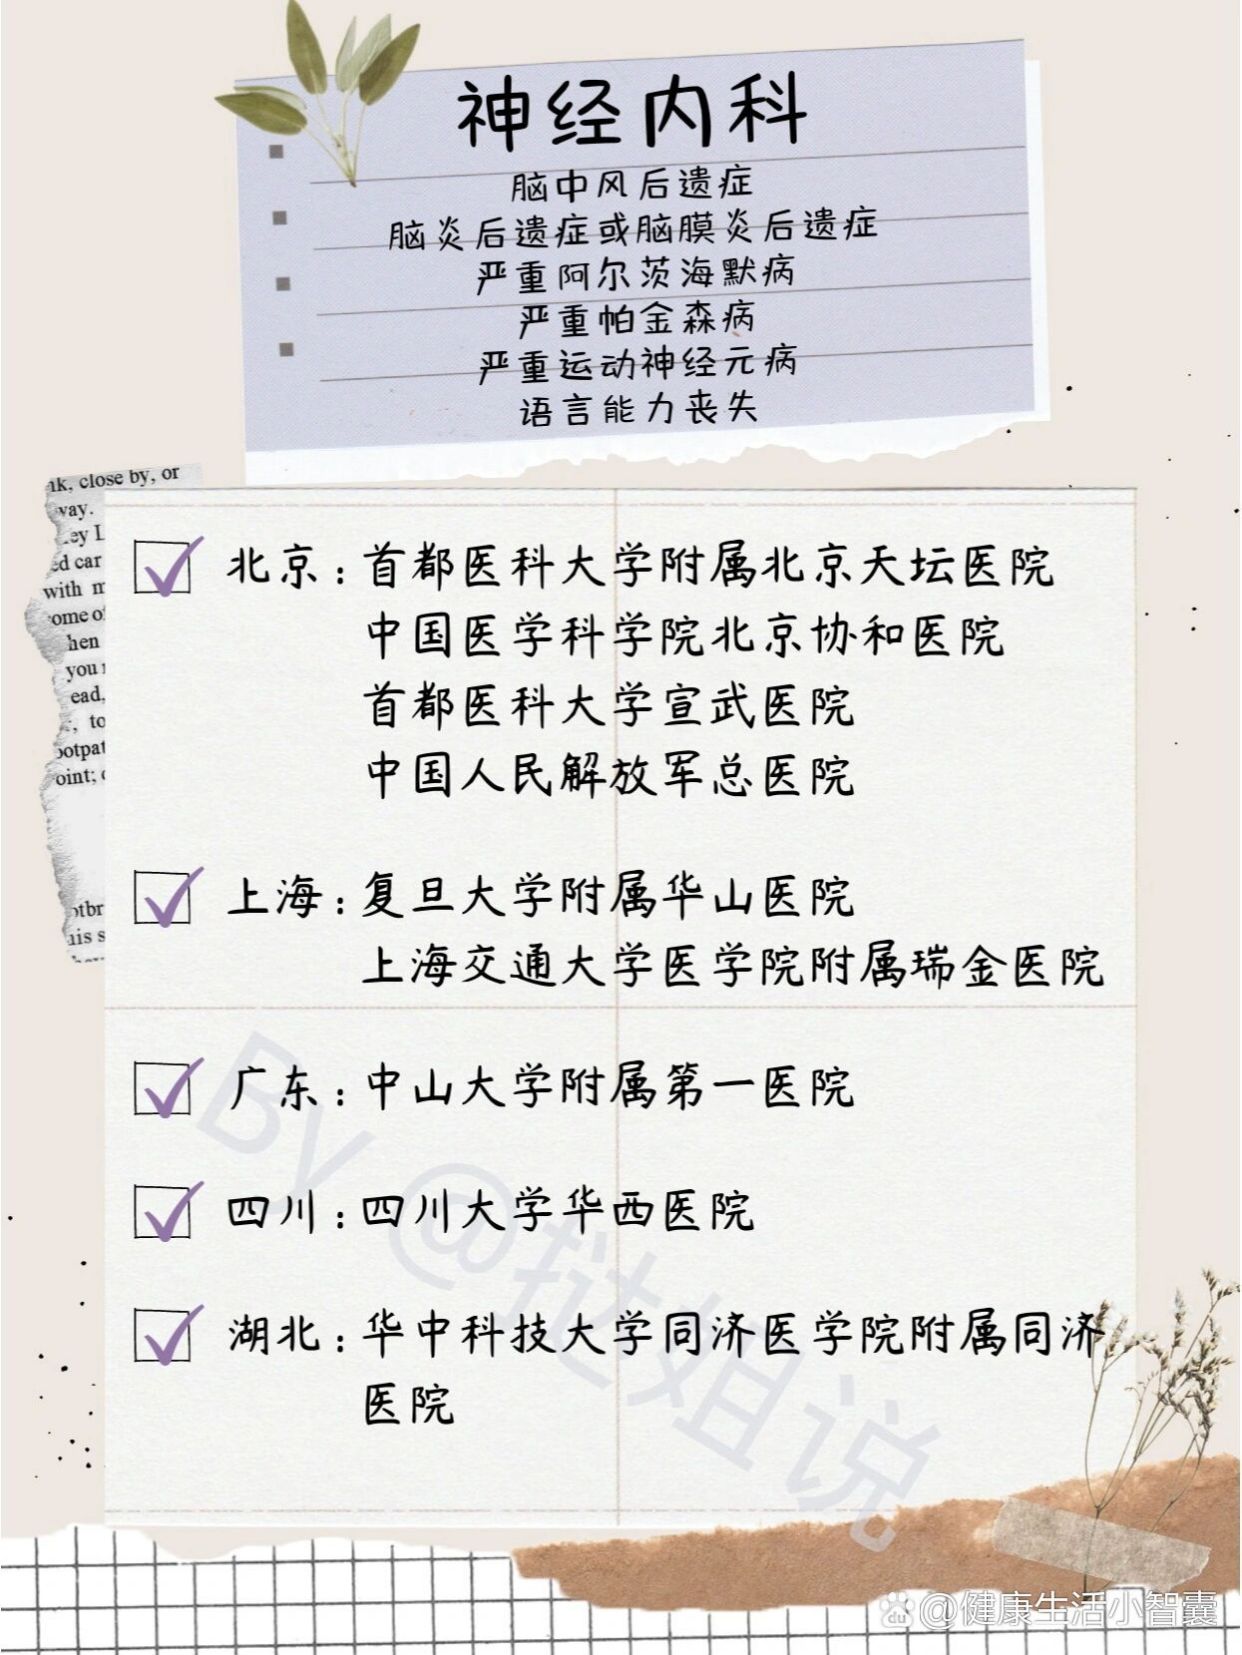 神经内科
脑中风后遗症
脑炎后遗症或脑膜炎后遗症
严重阿尔茨海默病
严重帕金森病
严重运动神经元病
语言能力丧失
nk, close by, or
way.
ey L
ed car
with m
ome of
hen
you
ead,
, to
ootpat
oint;
北京：首都医科大学附属北京天坛医院
中国医学科学院北京协和医院
首都医科大学宣武医院
中国人民解放军总医院
otbr
his s
上海：复旦大学附属华山医院
上海交通大学医学院附属瑞金医院
广东：中山大学附属第一医院
四川：四川大学华西医院
湖北：华中科技大学同济医学院附属同济
医院
By @挞姐说
du @健康生活小智囊